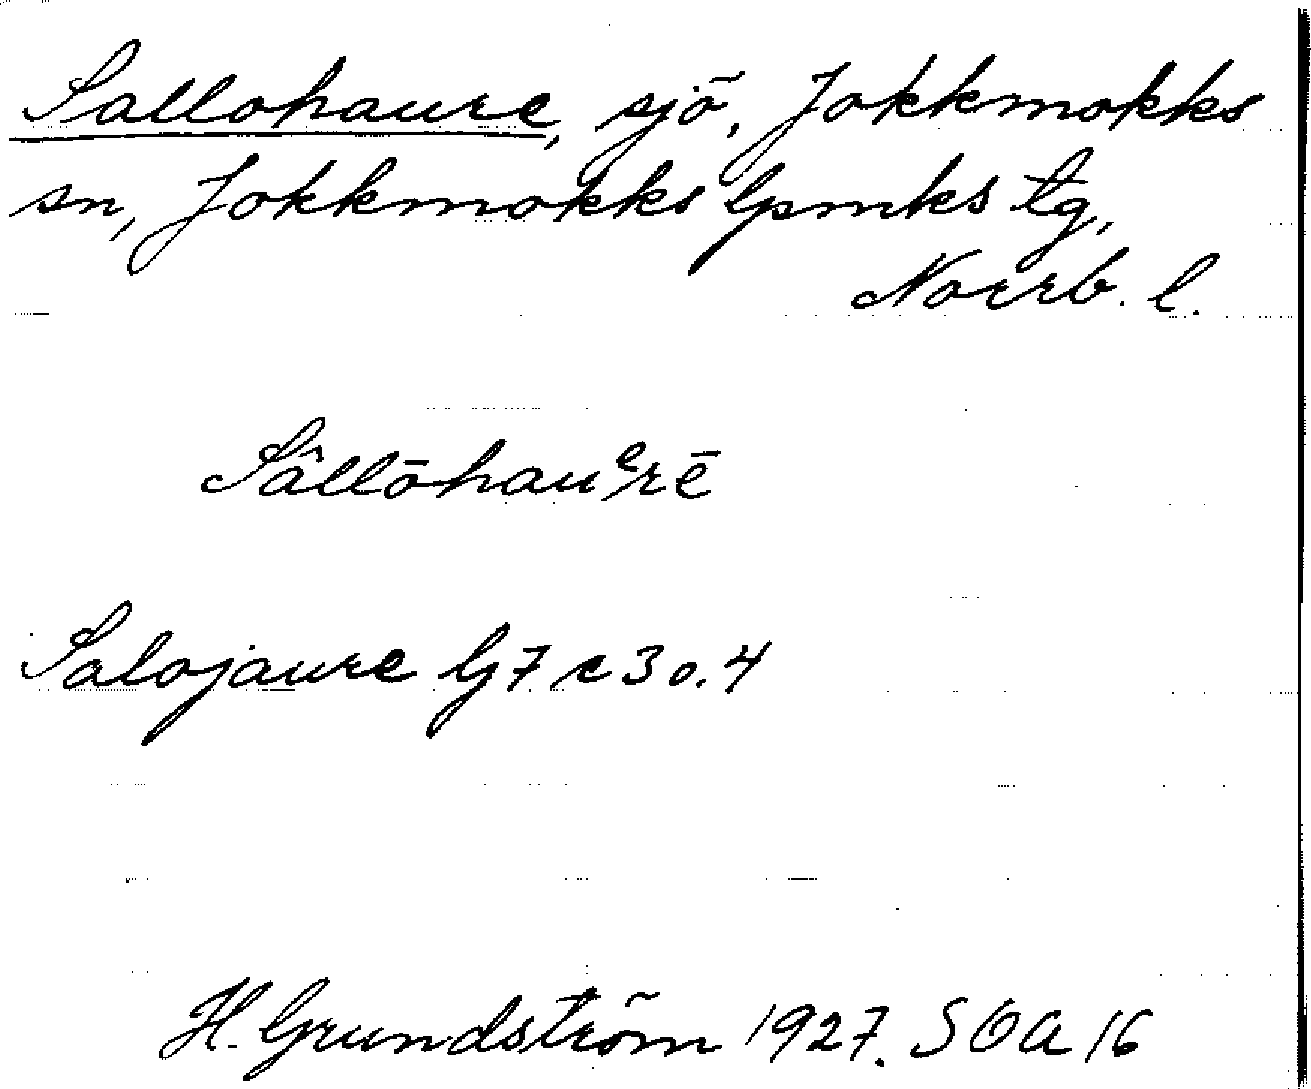 Sallohaure, sjö, Jokkmokks
sn, Jokkmokks lpmks tg,
Norrb. l.
Sâllōhauᵉrē
Salojaure Bj 7 c 3 o. 4
H. Grundström 1927. SOA 16